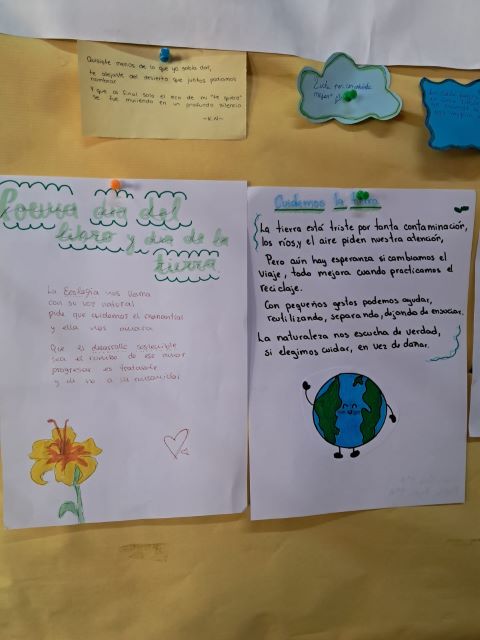 Quisiste menos de lo que yo sabía dar,
te alejaste del desierto que juntos podíamos
nombrar
Y que al final solo el eco de mi "te quiero"
se fue muriendo en un profundo silencio
-K.N-
Poema día del
libro y día de la
tierra
La Ecología nos llama
con su voz natural
pide que cuidemos el manantial
y ella nos amara
Que el desarrollo sostenible
sea el nombre de ese amor
progresar es
y
Cuidemos la tierra
La tierra está triste por tanta contaminación,
los ríos, y el aire piden nuestra atención,
Pero aún hay esperanza si cambiamos el
viaje, todo mejora cuando practicamos el
reciclaje.
Con pequeños gestos podemos ayudar,
reutilizando, separando, dejando de ensuciar.
La naturaleza nos escucha de verdad,
si elegimos cuidar, en vez de dañar.